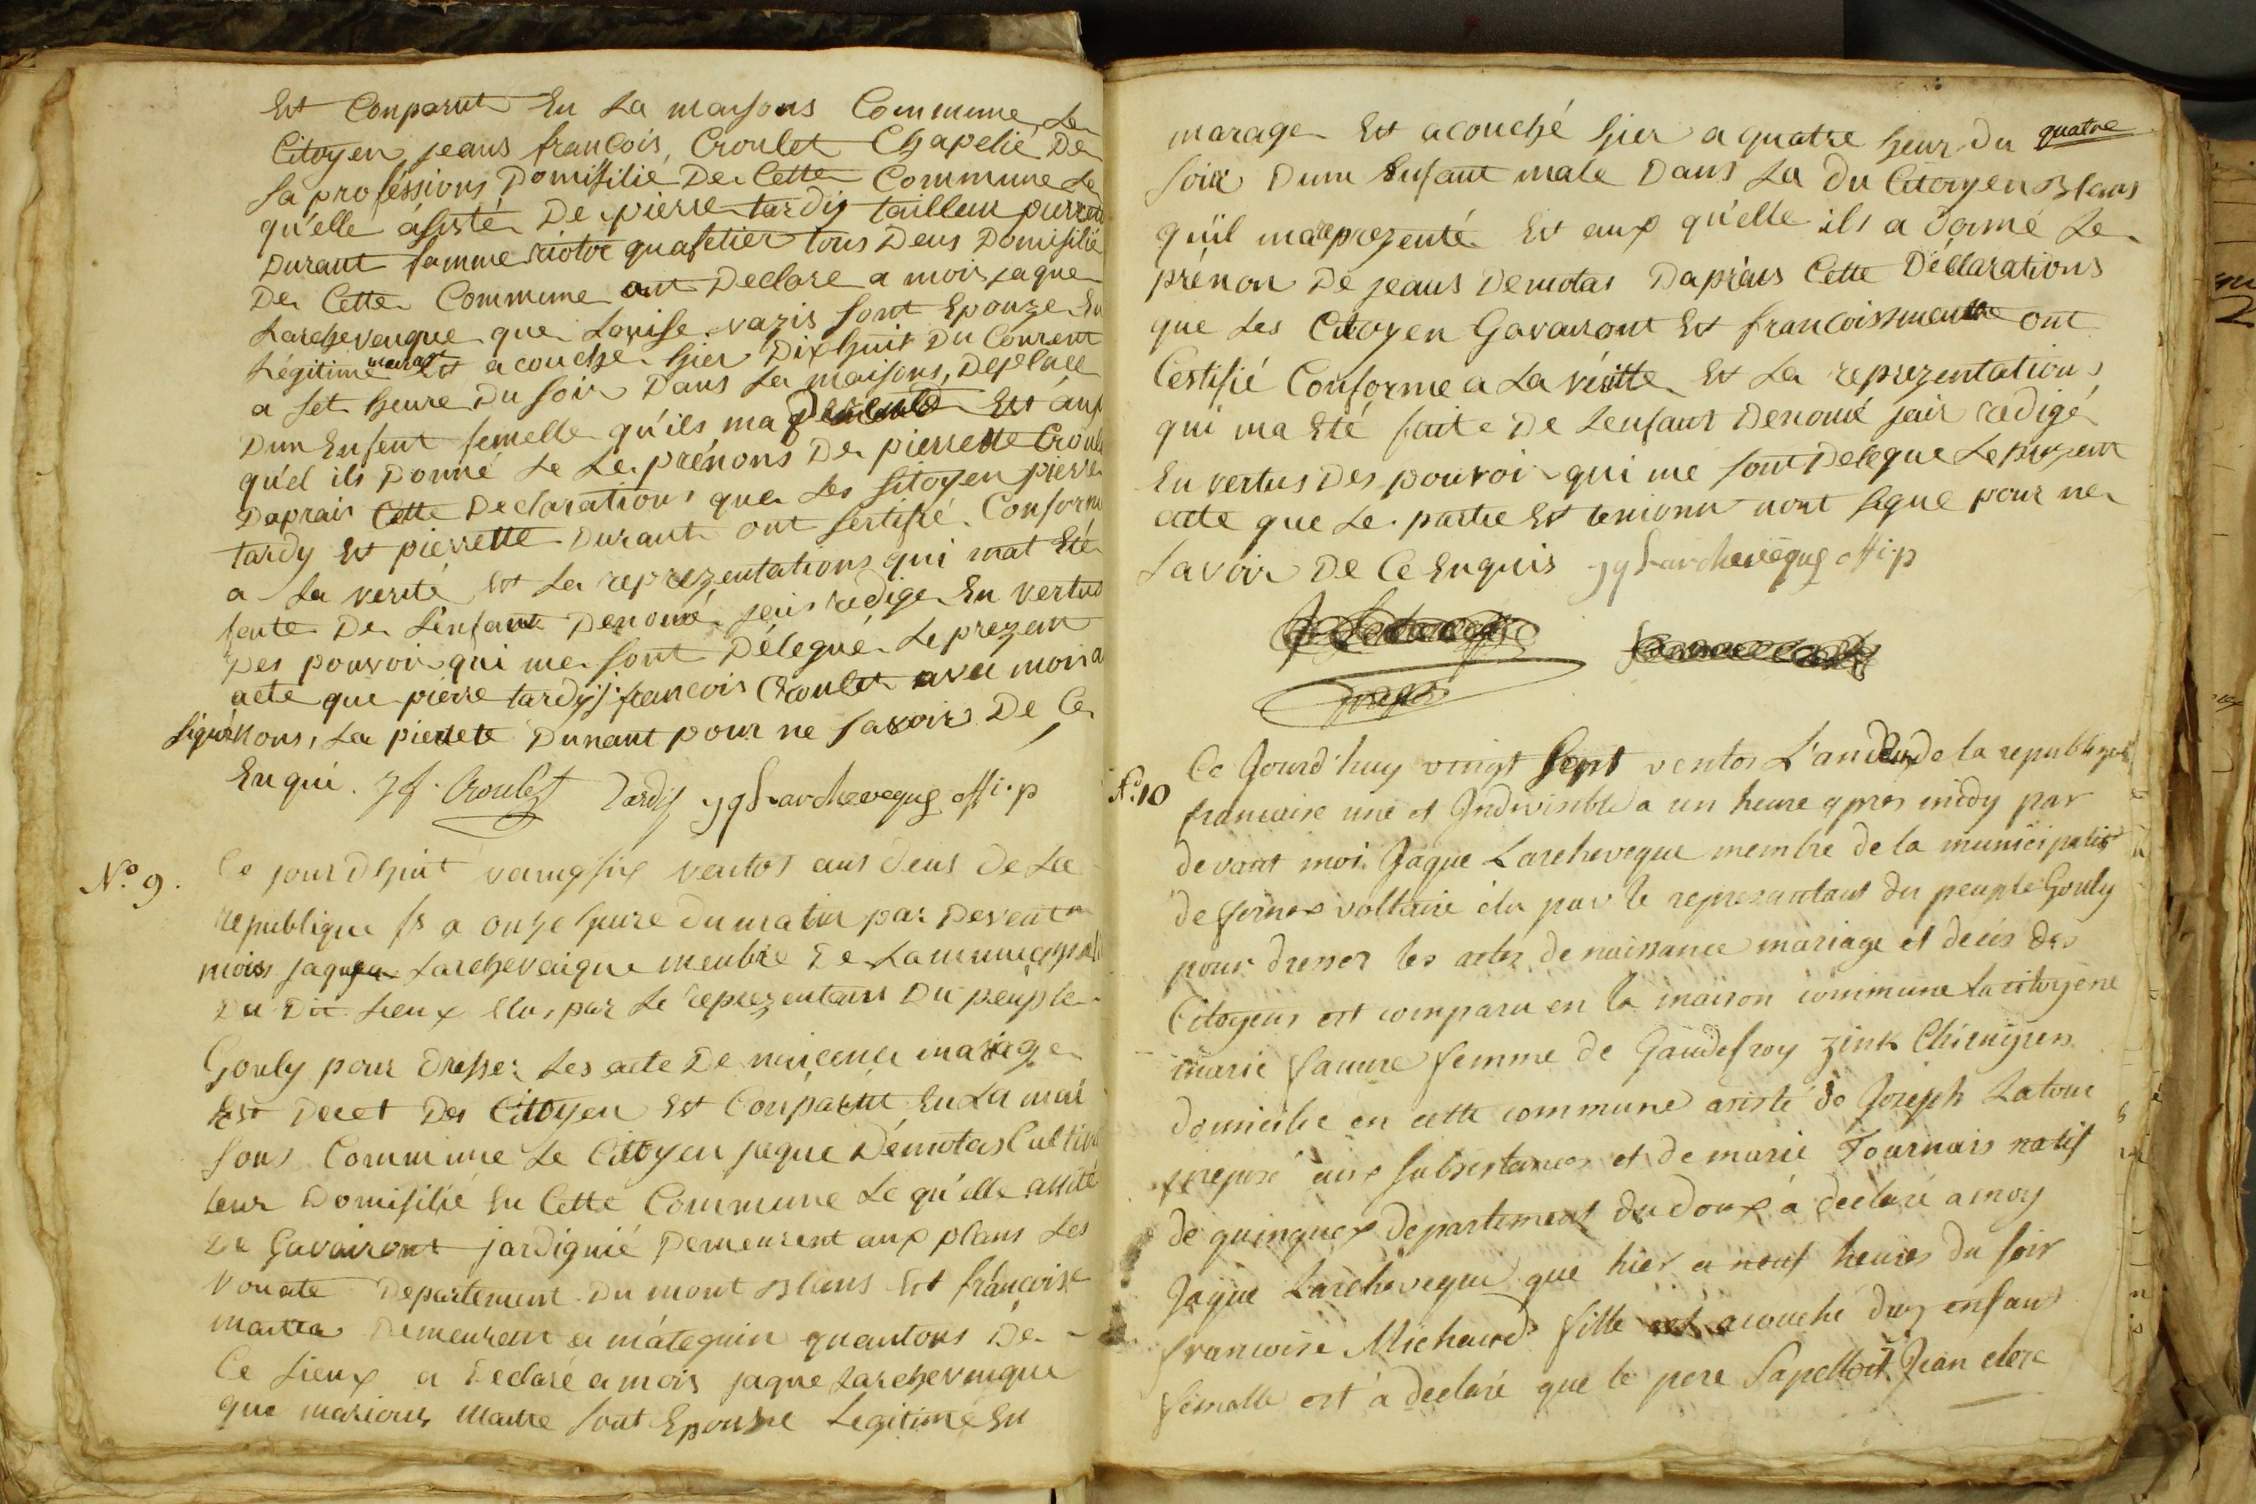 Est Conparut En La maisons Commune Le
Citoyen jeans francois, Croulet Chapelié De
sa proféssions Domisilié De Cette Commune Le
qu'elle asisté De pierre tardis tailleur pierrette
Durant famme riotor quafetier tous Deus Domisilié
De Cette Commune ont Declare a mois jaque
Larchevenque que Louise vazis sont Epouze En
Légitime mariage Est acouche hier Dixhuit Du Courent
a set heure Du soir Dans La maisons, Deplace
Dun Enfent femelle qu'ils ma Est aux
qu'el ils Donné Le Le prénons De pierrette Croulet
Daprais Cette Declarations que Les sitoyen pierre
tardy Est pierrette Durant ont sertifié Conforme
a La verité Est La reprezentations qui mat Eté
fente De L'enfant Denomé jais redige En vertus
Des pouvoir qui me sont Délegué Le prezent
acte que pierre tardy j. francois Croulet avec mois a
signé Nons, La pierete Durant pour ne savoir De Ce
Enqui. J f. Croulet Tardis jq Larcheveque offi.p
N.o 9. Ce jourdhuit vaingsix ventos ans deus De La
republique fs a onze heure du matin par Devent
mois jaque Larchevaique menbre De La municipal
Du Dit Lieux Elus par Le reprezentans Du peuple
Gouly pour dresser Les acte De naicence mariage
Est Decet Des Citoyen Est Conparut En La mai
sons Commune Le Citoyen jaque Démotas Cultiva
teur Domisilié En Cette Commune Le qu'elle assité
De Gavairont jardignié Demeurent aux plans Les
Vouate Departement Du mont Blans Est francoise
maitre Demeurent a mátequin quantons De
Ce Lieux a Declaré a mois jaque Larchevenque
que marions Maitre sont Epousse Legitime En
marage Est acouché hier a quatre heur du quatre
soir Dun Enfant male Dans La du Citoyen Blans
quil ma reprezenté Est aux qu'elle ils a donné Le
prénon De jeans Demotas Daprais Cette Déclarations
que Les Citoyen Gavairont Est francoissmaitre ont
Certifié Conforme a La véritte Est La reprezentations
qui ma Eté faite De Lenfant Denomé jais redigé
En vertus Des pouvoir qui me sont Delegue Le prezent
acte que Le partie Est temions nont signe pour ne
savoir De Ce Enquis jq Larcheveque offi.p
N.o 10 Ce Jourd'huy vingt Sept ventos L'an deux de la republique
francaise une et Indivisible a un heure apres midy par
devant moi Jaque Larcheveque membre de la municipalité
de fernex voltaire élu par le represantant du peuple Gouly
pour dresser les actes de naissance mariage et décés des
Citoyens est comparu en la maison commune la citoyene
marie faure femme de Gaudefroy Zink Chirurgien
domicilie en cette commune asisté de Joseph Latour
preposé aux subsistances et de marie Tournais natif
de quinquex departement du doux a declaré a moy
Jaque Larcheveque que hier a neuf heures du soir
francoise Michaud fille est acouché dun enfant
fémelle est a declaré que le pere sapelloit Jean clerc